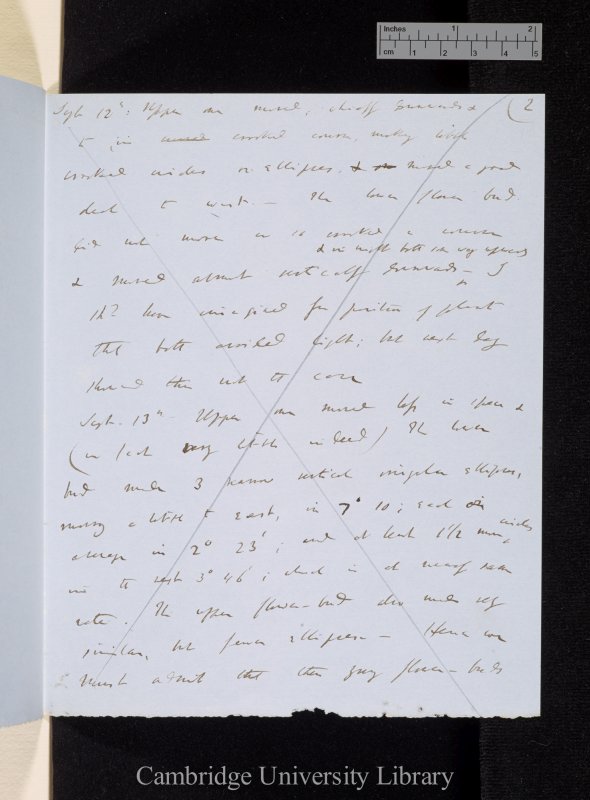 (2
Sept 12th: Upper one moved, chiefly downwards &
to, in crooked course, making little
crooked circles or ellipses, & moved a good
deal to west — The lower flower bud
did not move in so crooked a course
& in night both rose very upwards
& moved almost vertically downwards — I
shd have imagined from position of plant
that both avoided light; but next day
showed this not the case
Sept. 13th — Upper one moved less in space &
(in fact very little indeed) The lower
bud made 3 narrow vertical irregular ellipses,
moving a little to east, in 7° 10'; each circles
average in 2° 23'; and at least 1 1/2 more,
in the next 3° 46'; which is at nearly same
rate. The upper flower-bud also made very
similar, but fewer ellipses — Hence one
must admit that the young flower-buds
Inches 1 2
cm 1 2 3 4 5
Cambridge University Library